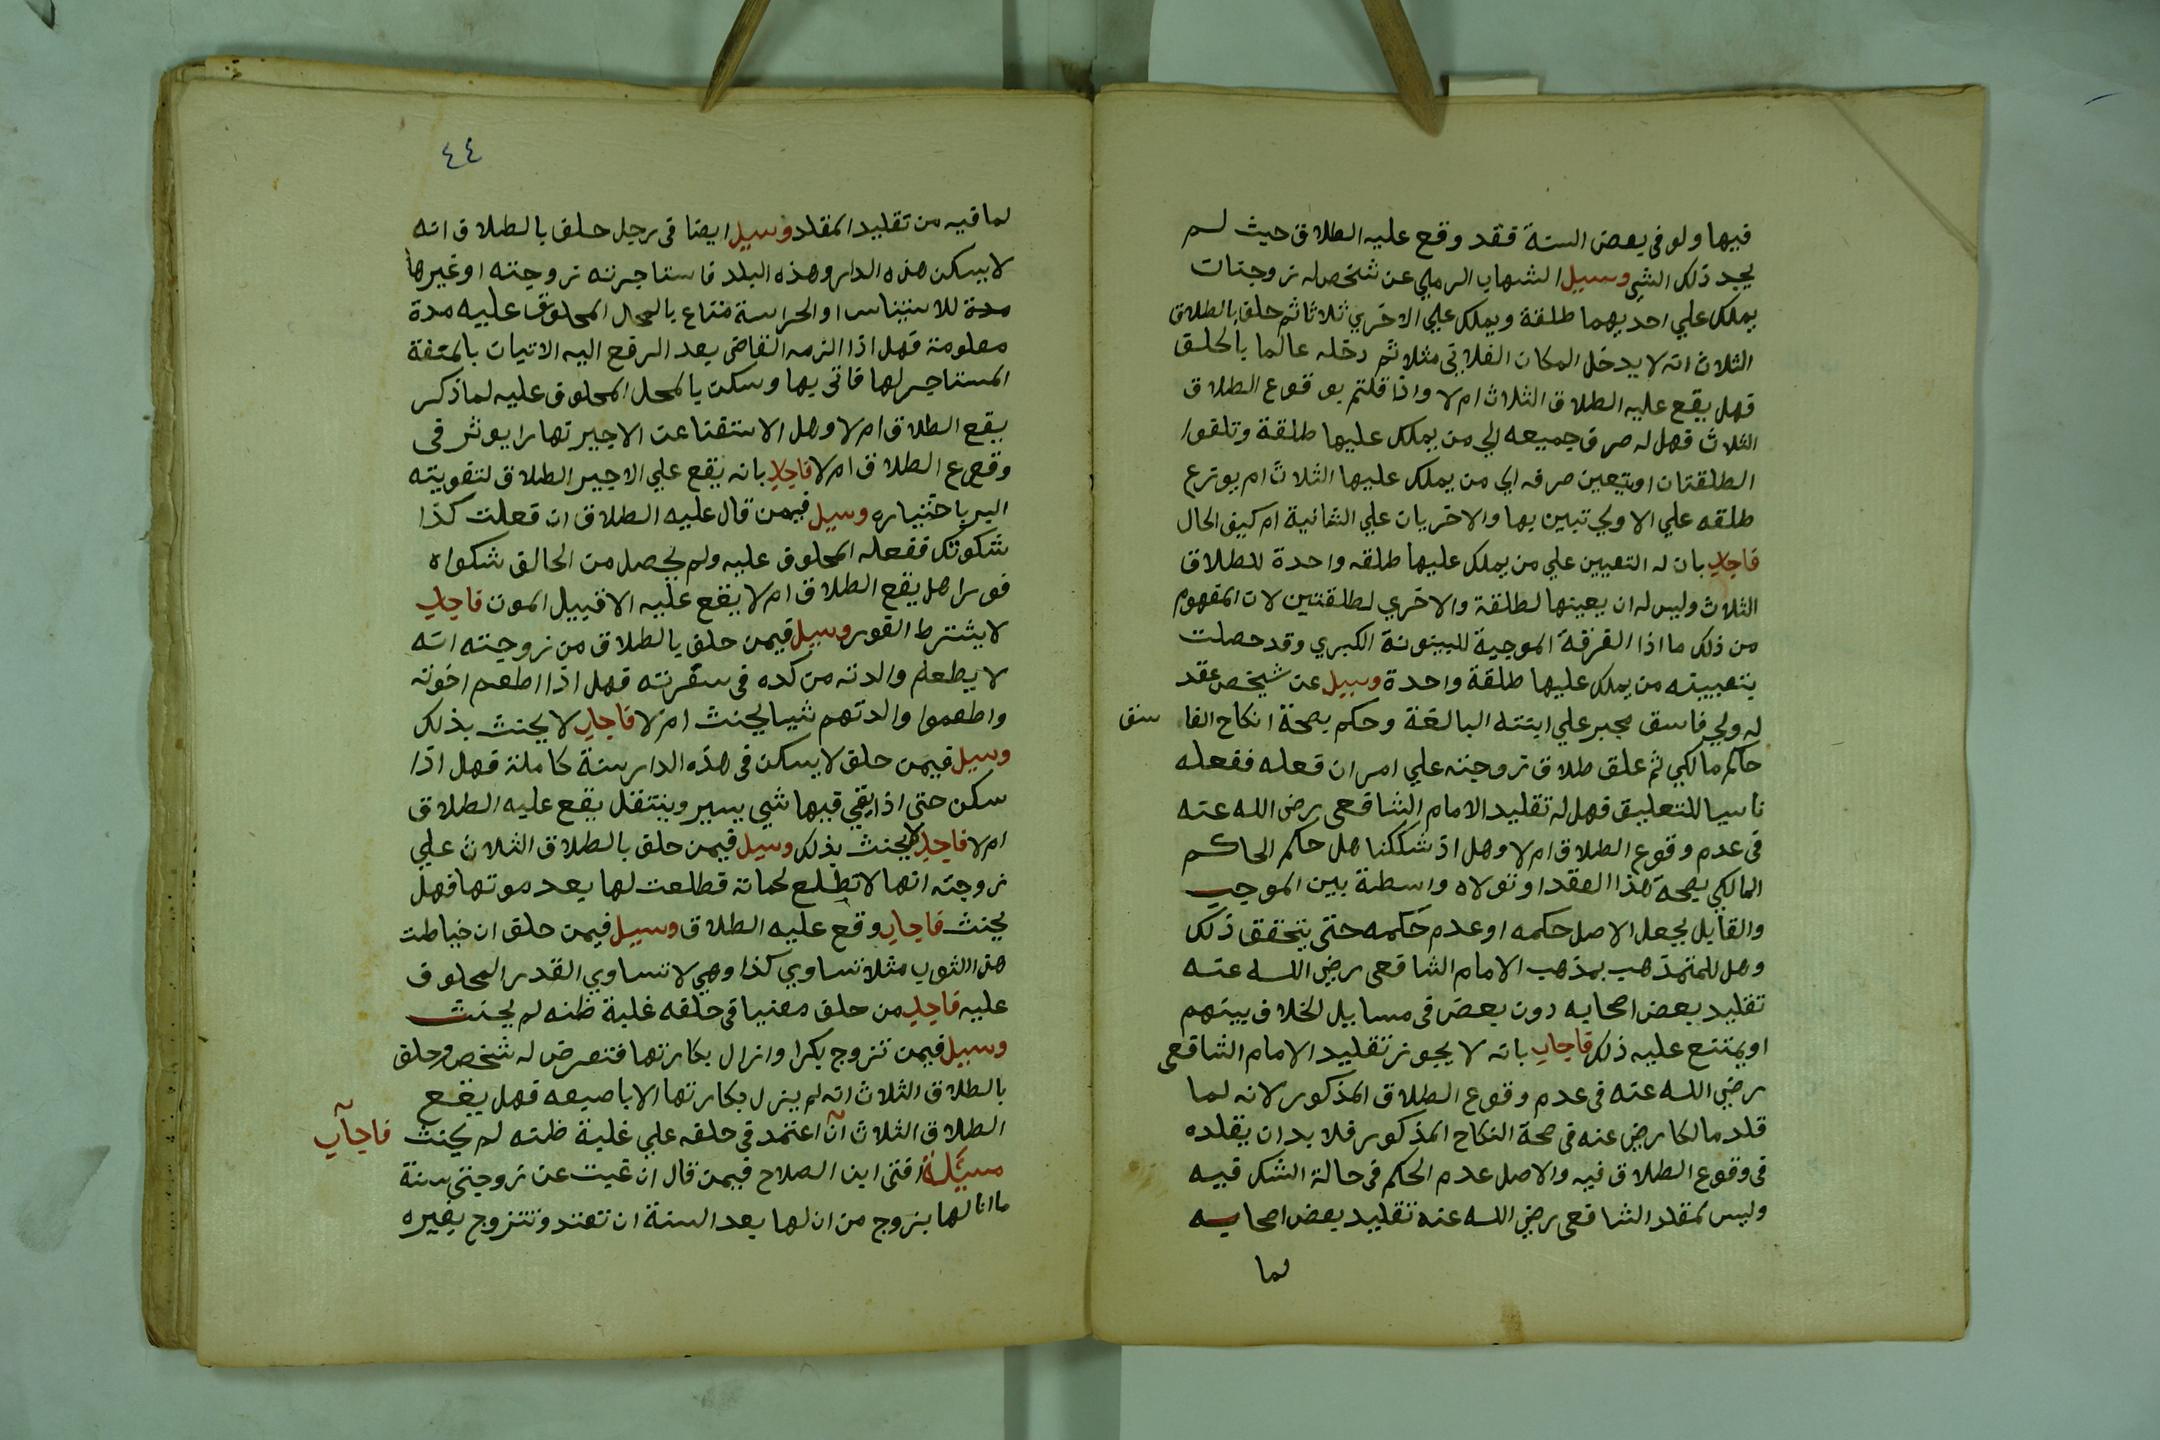 فيها ولو في بعض السنة فقد وقع عليه الطلاق حيث لم
يجد ذلك الشي وسيل الشهاب الرملي عن شخص له زوجتان
يملك علي احديهما طلقة ويملك علي الاخري ثلاثا ثم حلف بالطلاق
الثلاث انه لا يدخل المكان الفلاني مثلا ثم دخله عالما بالحلف
فهل يقع عليه الطلاق الثلاث ام لا واذا قلتم بوقوع الطلاق
الثلاث فهل له صرف جميعه الي من يملك عليها طلقة وتلغوا
الطلقتان او يتعين صرفه الي من يملك عليها الثلاث ام يوزع
طلقه علي الاولي تبين بها والاخريان علي الثانية ام كيف الحال
فاجاب بان له التعيين علي من يملك عليها طلقه واحدة للطلاق
الثلاث وليس له ان يعينها لطلقة والاخري لطلقتين لان المفهوم
من ذلك ما اذا الفرقة الموجبة للبينونة الكبري وقد حصلت
بتعيينه من يملك عليها طلقة واحدة وسيل عن شخص عقد
له ولي فاسق مجبر علي ابنته البالغة وحكم بصحة انكاح الفا سق
حاكم مالكي ثم علق طلاق زوجته علي امر ان فعله ففعله
ناسيا للتعليق فهل له تقليد الامام الشافعي رضي الله عنه
في عدم وقوع الطلاق ام لا وهل اذ شككنا هل حكم الحاكم
المالكي بصحة هذا العقد او تولاه واسطة بين الموجب
والقابل يجعل الاصل حكمه او عدم حكمه حتي يتحقق ذلك
وهل للمتمذهب بمذهب الامام الشافعي رضي الله عنه
تقليد بعض اصحابه دون بعض في مسايل الخلاف بينهم
او يمتنع عليه ذلك فاجاب بانه لا يجوز تقليد الامام الشافعي
رضي الله عنه في عدم وقوع الطلاق المذكور لانه لما
قلد مالكا رضي عنه في صحة النكاح المذكور فلا بد ان يقلده
في وقوع الطلاق فيه والاصل عدم الحكم في حالة الشك فيه
وليس لمقلد الشافعي رضي الله عنه تقليد بعض اصحابه
لما
٤٤
لما فيه من تقليد المقلد وسيل ايضا في رجل حلف بالطلاق انه
لا يسكن هذه الدار وهذه البلد فاستاجرته زوجته او غيرها
مدة للاستيناس او الحراسة متاع بالمحل المحلوف عليه مدة
معلومة فهل اذا الزمه القاضي بعد الرفع اليه الاتيان بالمنفعة
المستاجر لها فاتي بها وسكن بالمحل المحلوف عليه لما ذكر
يقع الطلاق ام لا وهل الاستغنا عن الاجير نهارا يوثر في
وقوع الطلاق ام لا فاجاب بانه يقع علي الاجير الطلاق لتفويته
البر باختياره وسيل فيمن قال عليه الطلاق ان فعلت كذا
شكوتك ففعله المحلوف عليه ولم يحصل من الحالف شكواه
فورا هل يقع الطلاق ام لا يقع عليه الا قبيل الموت فاجاب
لا يشترط الفور وسيل فيمن حلف بالطلاق من زوجته انه
لا يطعم والدته من كده في سفرته فهل اذا اطعم اخوته
واطعموا والدتهم شيا يحنث ام لا فاجاب لا يحنث بذلك
وسيل فيمن حلف لا يسكن في هذه الدار سنة كاملة فهل اذا
سكن حتي اذا بقي فيها شي يسير وينتقل يقع عليه الطلاق
ام لا فاجاب لا يحنث بذلك وسيل فيمن حلف بالطلاق الثلاث علي
زوجته انها لا تطلع لحماته فطلعت لها بعد موتها فهل
يحنث فاجاب وقع عليه الطلاق وسيل فيمن حلف ان خياطت
هذا الثوب مثلا تساوي كذا وهي لا تساوي القدر المحلوف
عليه فاجاب من حلف معنيا في حلفه غلبة ظنه لم يحنث
وسيل فيمن تزوج بكرا وازال بكارتها فتعرض له شخص وحلف
بالطلاق الثلاث انه لم يزل بكارتها الا باصبعه فهل يقع
الطلاق الثلاث ان اعتمد في حلفه علي غلبة ظنه لم يحنث فاجاب
مسيلة افتي ابن الصلاح فيمن قال ان غبت عن زوجتي سنة
ما انا لها بزوج من ان لها بعد السنة ان تعتد وتتزوج بغيره